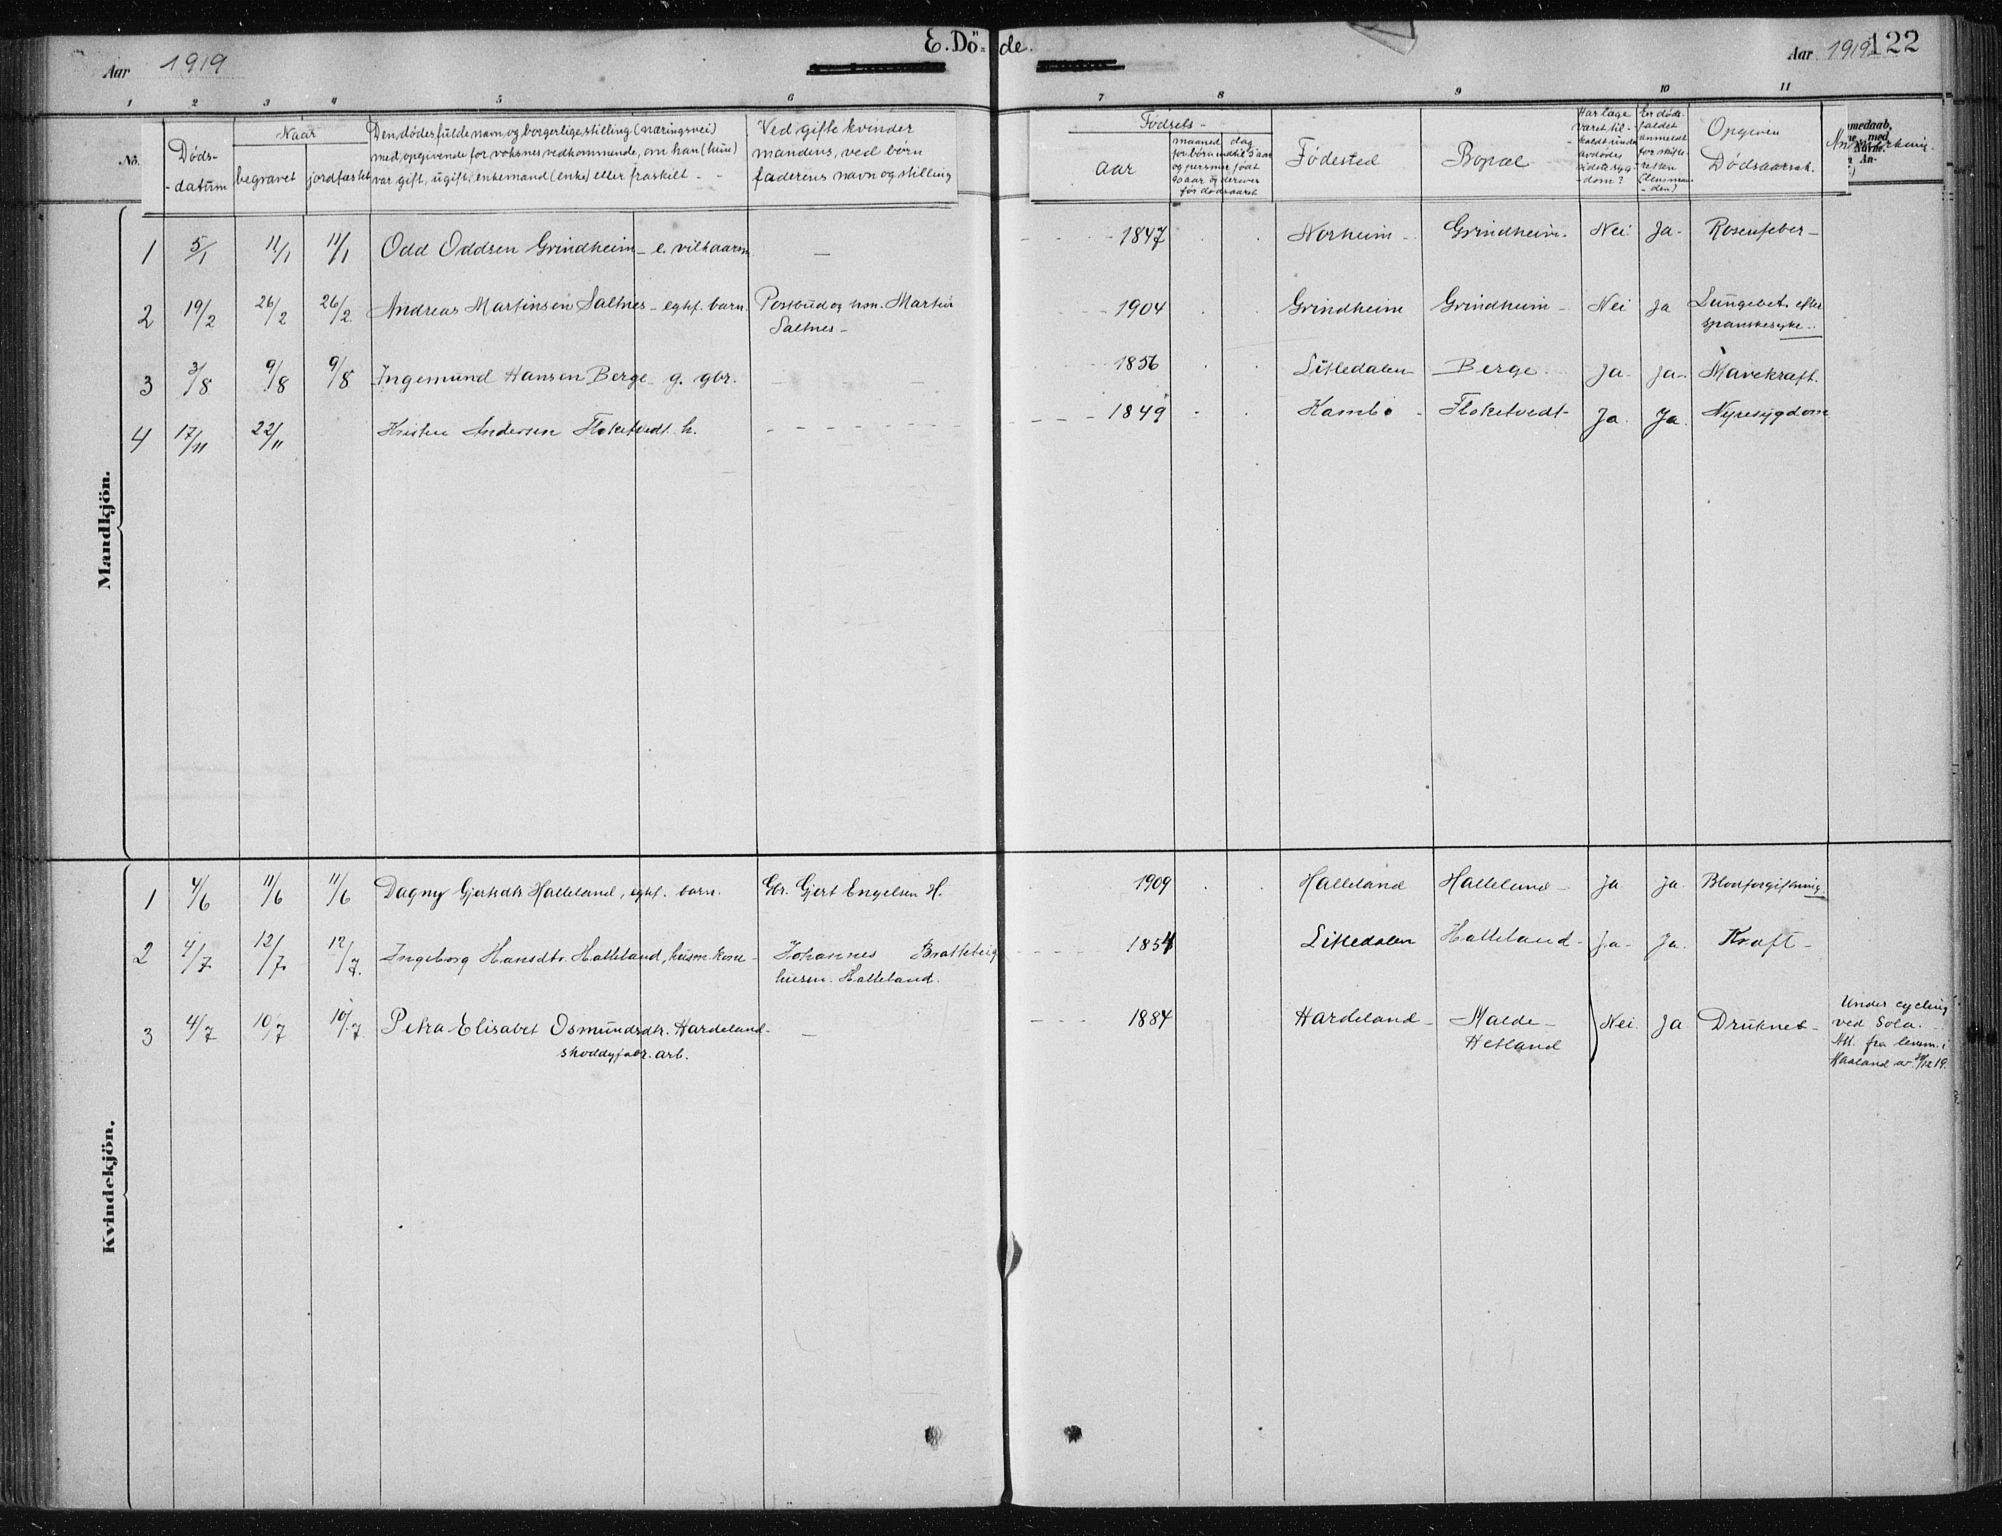 E. Döde.
Aar 1919
Aar 1919
122
1 2 3 4 5 6 7 8 9 10 11
No.
Døds-datum
Naar
begravet
jordfæstet
Den dødes fulde navn og borgerlige stilling (næringsvei)
med opgivende for voksnes vedkommende, om han (hun)
var gift, ugift, enkemand (enke) eller fraskilt - -
Ved gifte kvinder
mandens, ved børn
faderens navn og stilling
Fødsels-
aar
maaned dag
for børn indtil 5 aar
og personer født
90 aar og derover
før dødsaaret
Fødested
Bopæl
Har læge
været til-
kaldt under
avdødes
sidste syg-
dom?
Er døds-
faldet
anmeldt
for skifte-
retten
(Lensman-
den)
Opgiven
Dødsaarsak.
Anmerkning.
Mandkjön.
1 5/1 11/1 11/1 Odd Oddsen Grindheim - e. vilkaarm. — 1847 Norheim - Grindheim. Nei Ja- Rosenfeber -
2 19/2 26/2 26/2 Andreas Martinsen Saltnes - egtf. barn. Postbud og hm. Martin 1904 Grindheim Grindheim - Nei Ja Lungebet. efter
Saltnes - spanskesyke.
3 3/8 9/8 9/8 Ingemund Hansen Berge - g. gbr. 1856 Litledalen Berge Ja- Ja- Mavekraft.
4 17/11 22/11 Kristen Andersen Floketvedt h. 1849 Kambo - Floketvedt - Ja. Ja. Nyresygdom
Kvindekjön.
1 4/6 11/6 11/6 Dagny Gjertsdtr Halleland, egtf. barn. Gbr. Gjert Engelsen H. 1909 Halleland Halleland - Ja Ja. Blodforgiftning.
2 4/7 12/7 12/7. Ingeborg Hansdtr. Halleland, husm. kone - Johannes Bratteteig 1854 Litledalen Halleland - Ja- Ja. Kraft -
husm. Halleland.
3 4/7 10/7 10/7 Petra Elisabet Osmundsdtr. Hardeland - — 1884 Hardeland - Malde - Nei Ja Druknet -
skoddyfabr. arb. Hetland
Under cycling
ved Sola.
Att. fra lensm. i
Haaland av /12 19.